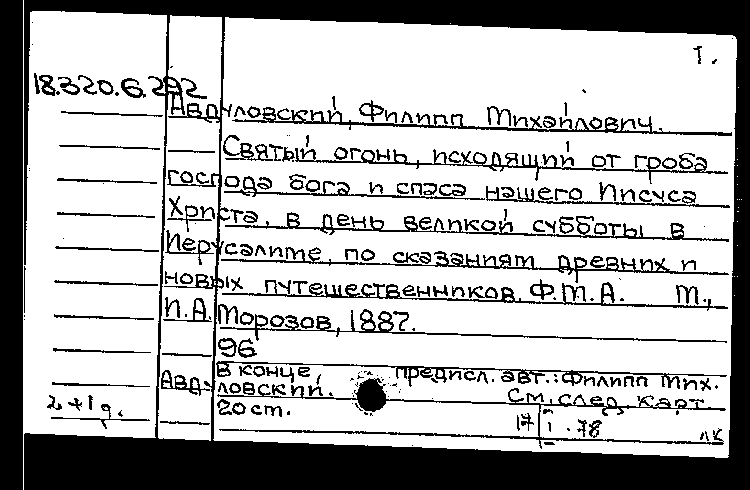 I.
18.320.6.292
Авдуловский, Филипп Михайлович.
Святый огонь, исходящий от гроба
господа бога и спаса нашего Иисуса
Христа, в день великой субботы в
Иерусалиме, по сказаниям древних и
новых путешественников. Ф.М.А. М.,
И.А. Морозов, 1887.
96
В конце, предисл. авт.: Филипп Мих.
Авдуловский. См. след. карт.
20 ст.
17 I.78
лк